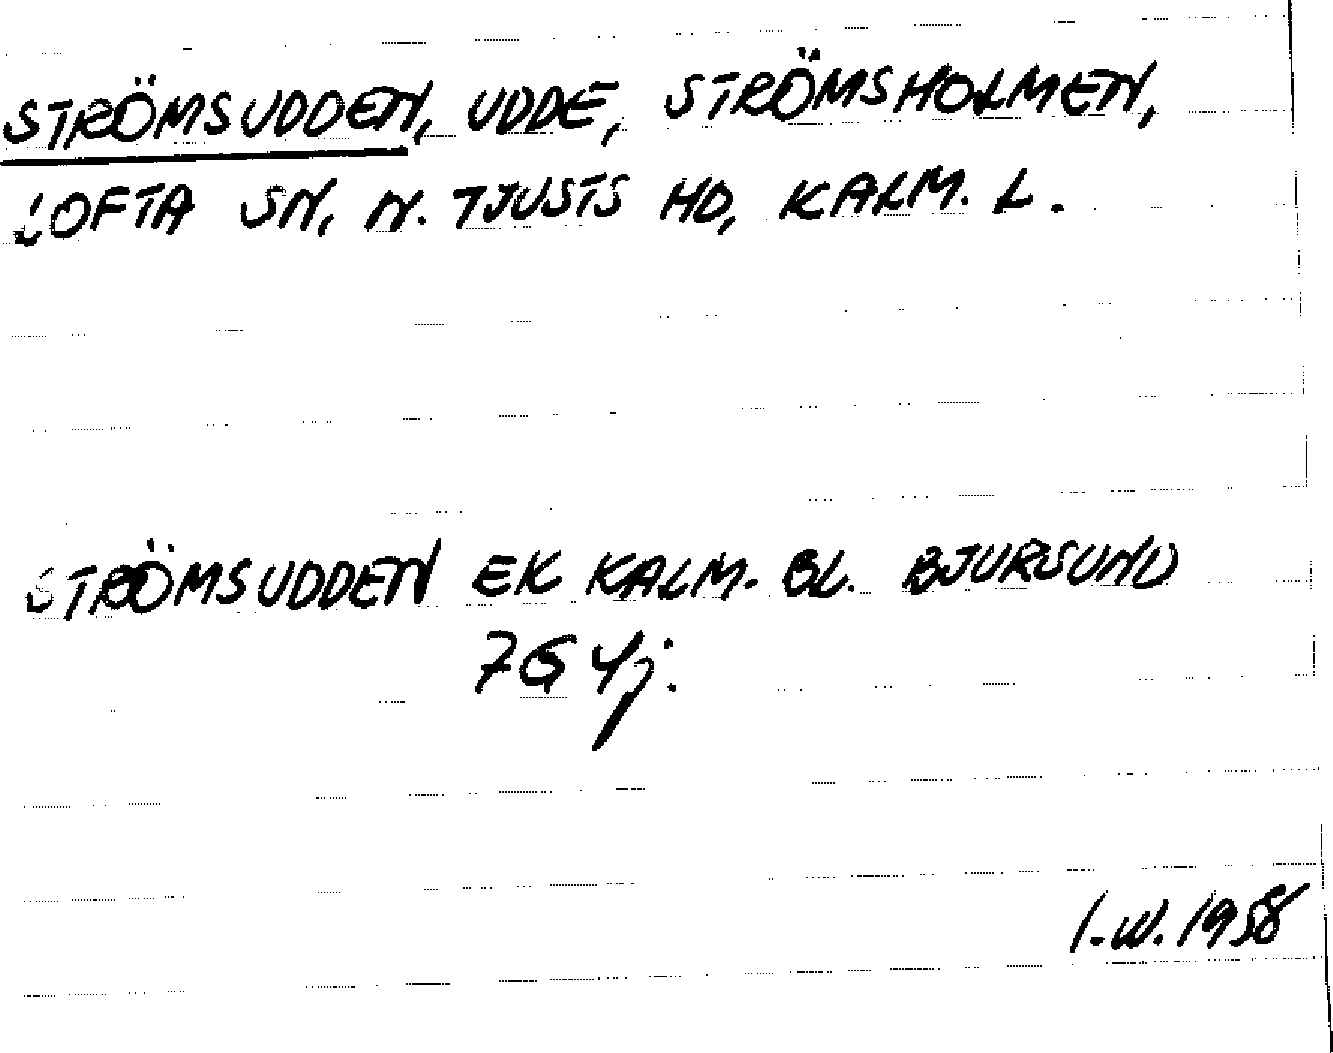 STRÖMSUDDEN, UDDE, STRÖMSHOLMEN,
LOFTA SN, N. TJUSTS HD, KALM. L.
STRÖMSUDDEN EK KALM. BL. BJURSUND
7G 4j.
I.W. 1958